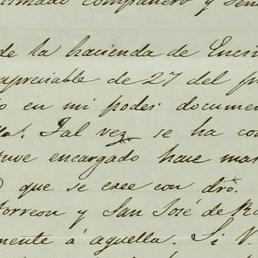 compañero y
de la hacienda de Enci
apreciable de 27 del p
o en mi poder documen
Tal vez se ha co
uve encargado hace mas
que se cree con dro.
orreon y San José de R
mente á aquella. Si V.